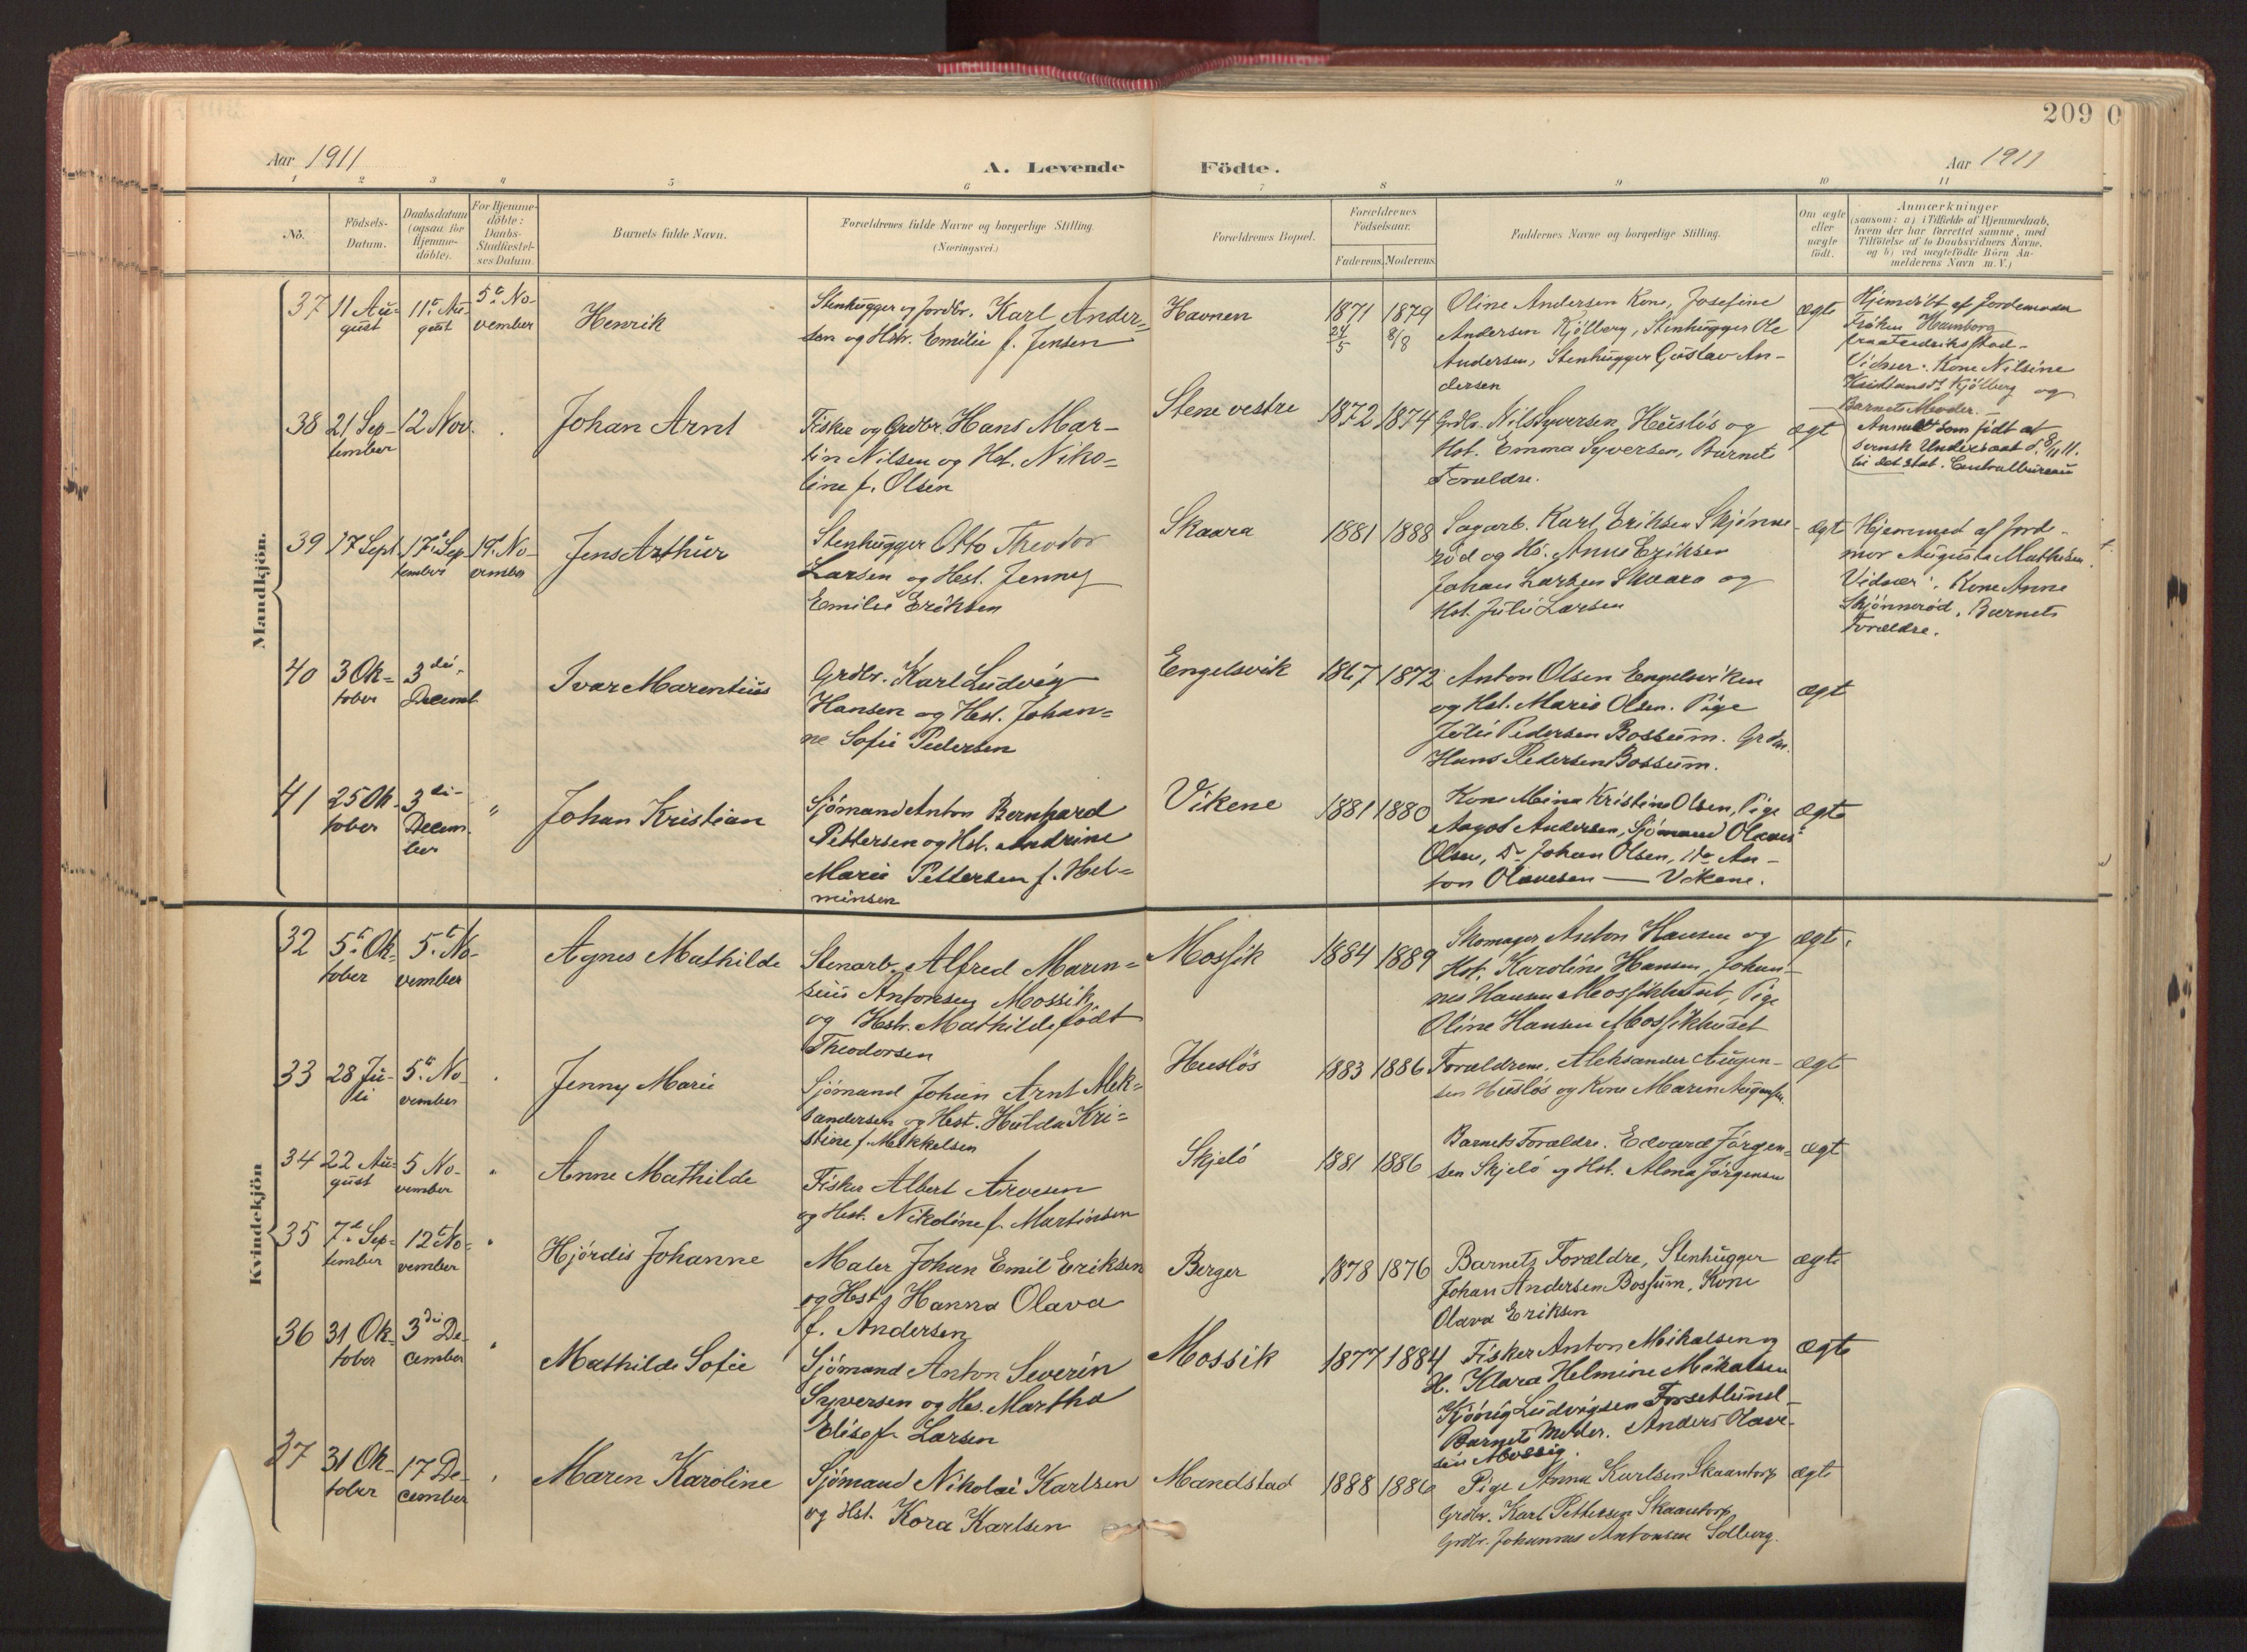 209 0
Aar 1911
A. Levende Födte.
Aar 1911
1 2 3 4 5 6 7 8 9 10 11
No.
Födsels-
Datum.
Daabsdatum
(ogsaa for
Hjemme-
döbte).
For Hjemme-
döbte:
Daabs-
Stadfæstel-
ses Datum
Barnets fulde Navn.
Forældrenes fulde Navne og borgerlige Stilling.
(Næringsvei.)
Forældrenes Bopæl.
Forældrenes
Födselsaar.
Faderens. Moderens.
Faddernes Navne og borgerlige Stilling.
Om ægte
eller
uægte
födt.
Anmærkninger
(saasom: a) i Tilfælde af Hjemmedaab,
hvem der har forrettet samme, med
Tilföielse af to Daabsvidners Navne.
og b) ved uægtefödte Börn An-
melderens Navn m. V.)
Mandkjön.
37
11 Au-
gust
11te Au-
gust
5te No-
vember
Henrik
Stenhugger og Jordbr. Karl Ander-
sen og Hstr. Emilie f. Jensen
Havnen
1871
24/5
1879
8/8
Oline Andersen Kone, Josefine
Andersen Kjölberg, Stenhugger Ole
Andersen, Stenhugger Gustav An-
dersen
ægte
Hjemdöbt af Jordemoder
Fröken Hamborg
fra Fredriksstad-
Vidner: Kone Nilsine
Kjölberg og
Barnets Moder.
38
21 Sep-
tember
12 Nov.
Johan Arnt
Fisker og Grdbr. Hans Mar-
tin Nilsen og Hst. Niko-
line f. Olsen
Stene vestre
1872
1874
Grdbr. Nils Syversen, Huslös og
Hst. Emma Syversen, Barnets
Forældre.
ægt
Anmeldt som födt af
svensk Undersaat d. 8/11 11.
til det stat. Centralbureau
39
17 Sept.
17de Sep-
tember
19de No-
vember
Jens Arthur
Stenhugger Otto Theodor
Larsen og Hst. Jenny
Emilie Eriksen
Skaara
1881
1888
Sagarb. Karl Eriksen Skjönne-
röd og Hs. Anne Eriksen
Johan Larsen Skaara og
Hst. Julie Larsen
ægt
Hjemmed. af Jord-
mor Augusta Mathisen.
Vidner: Kone Anne
Skjönneröd, Barnets
Forældre.
40
3 Ok-
tober
3die
Decemb.
Ivar Marentius
Grdbr. Karl Ludvig
Hansen og Hst. Johan-
ne Sofie Pedersen
Engelsvik
1867
1872
Anton Olsen Engelsviken
og Hst. Marie Olsen. Pige
Julie Pedersen Bossum. Grdbr.
Hans Pedersen Bossum.
ægt
41
25 Ok-
tober
3die
Decem-
ber
"
Johan Kristian
Sjömand Anton Bernhard
Pettersen og Hst. Andrine
Marie Pettersen f. Hel-
minsen
Vikene
1881
1880
Kone Mina Kristine Olsen, Pige
Aagot Andersen, Sjömand Olaves
Olsen, Do Johan Olsen, do An-
ton Olavesen — Vikene.
ægte
Kvindekjön
32
5te Ok-
tober
5te No-
vember
Agnes Mathilde
Stenarb. Alfred Maren-
sius Antonsen Mossik
og Hstr. Mathilde födt
Theodorsen
Mossik
1884
1889
Skomager Anton Hansen og
Hst. Karoline Hansen, Johan-
nes Hansen Mossikhuset, Pige
Oline Hansen Mossikhuset
ægte.
33
28 Ju-
li
5te No-
vember
Jenny Marie
Sjömand Johan Arnt Alek-
sandersen og Hst. Hulda Kri-
stine f. Mikkelsen
Huslös
1883
1886
Forældrene, Aleksander Augun-
sen Huslös og Kone Maren Augunsen.
ægte
34
22 Au-
gust
5 No-
vember
"
Anne Mathilde
Fisker Albert Arvesen
og Hst. Nikoline f. Martinsen
Skjelö
1881
1886
Barnets Forældre. Edvard Jörgen-
sen Skjelö og Hst. Alma Jörgensen
ægt
35
7de Sep-
tember
12te No-
vember
"
Hjördis Johanne
Maler Johan Emil Eriksen
og Hst. Hanna Olava
f. Andersen
Berger
1878
1876
Barnets Forældre, Stenhugger
Johan Andersen Bossum, Kone
Olava Eriksen
ægte
36
31 Ok-
tober
3die De-
cember
"
Mathilde Sofie
Sjömand Anton Severin
Syversen og Hs. Martha
Elise f. Larsen
Mossik
1877
1884
Fisker Anton Mikalsen og
H. Klara Helmine Mikalsen
Ludvigsen Torsetlund-
Barnets Moder. Anders Olave-
sen Mossig.
ægte
37
31 Ok-
tober
17 De-
cember
Maren Karoline
Sjömand Nikolai Karlsen
og Hst. Kora Karlsen
Mandstad
1888
1886
Pige Anna Karlsen Skaantorp
Grdbr. Karl Pettersen Skaantorp
Grdbr. Johannes Antonsen Solberg.
ægte